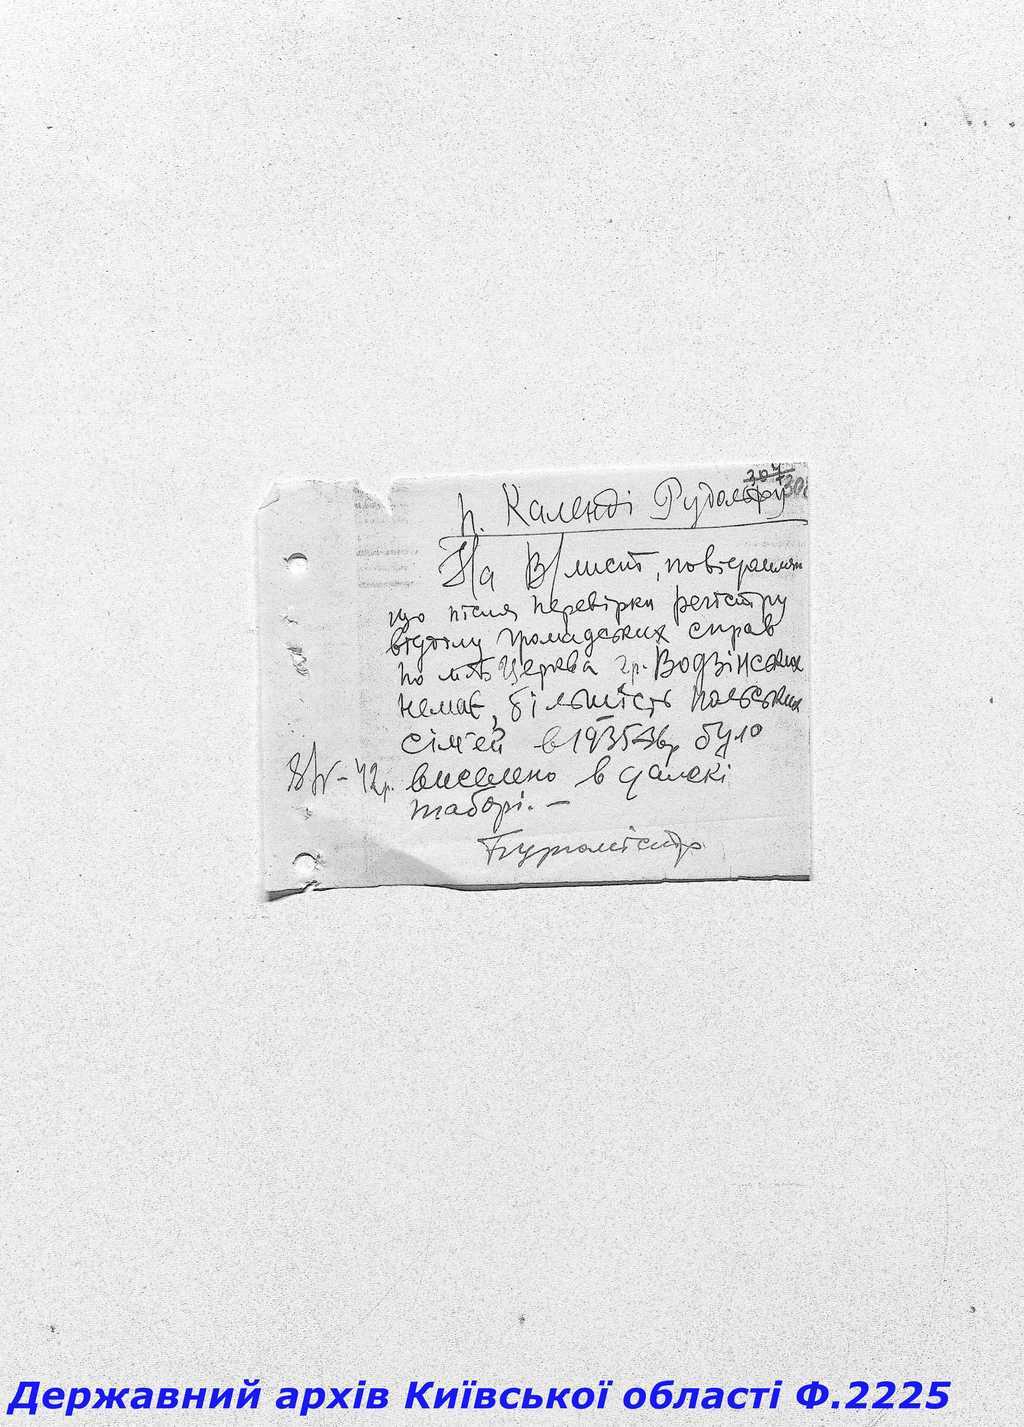 307
п. Календі Рудольфу
На В/лист, повідомляєм
що після перевірки регістру
відділу громадських справ
по м. Б Церква гр. Водзінських
немає, більшість польських
сімей в 1935-36 р було
8/IV-42р. виселено в далекі
таборі. —
Бургомістр
Державний архів Київської області Ф.2225